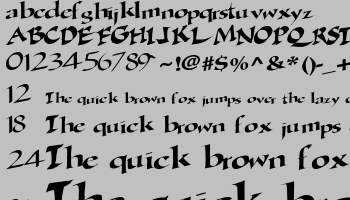 abcdefghijklmnopqrstuvwxyz
ABCDEFGHIJKLMNOPQRST
0123456789 ~!@#$%^&*()-_+
12 The quick brown fox jumps over the lazy
18 The quick brown fox jumps
24 The quick brown fox
The quick